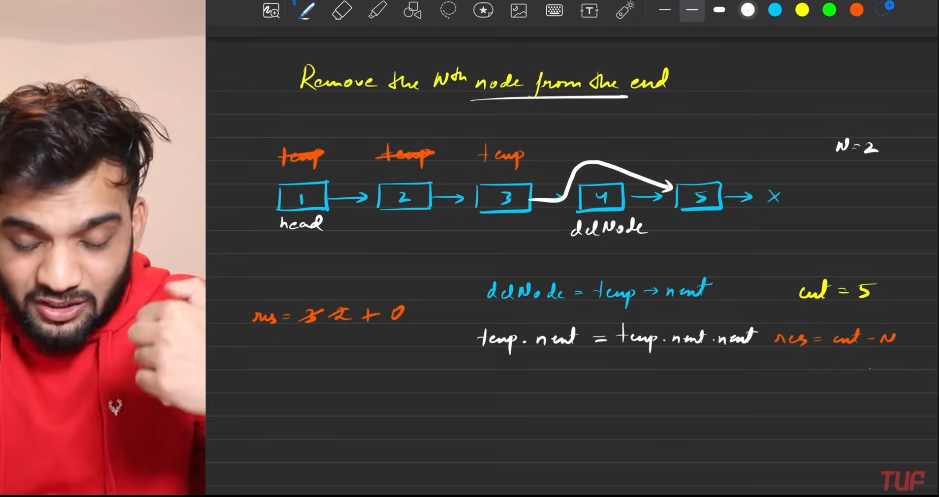 Remove the Nth node from the end
N=2
temp temp temp
1 → 2 → 3 → 4 → 5 → x
head delNode
delNode = temp → next cnt = 5
res = 3 2 1 0
temp.next = temp.next.next res = cnt - N
TUF